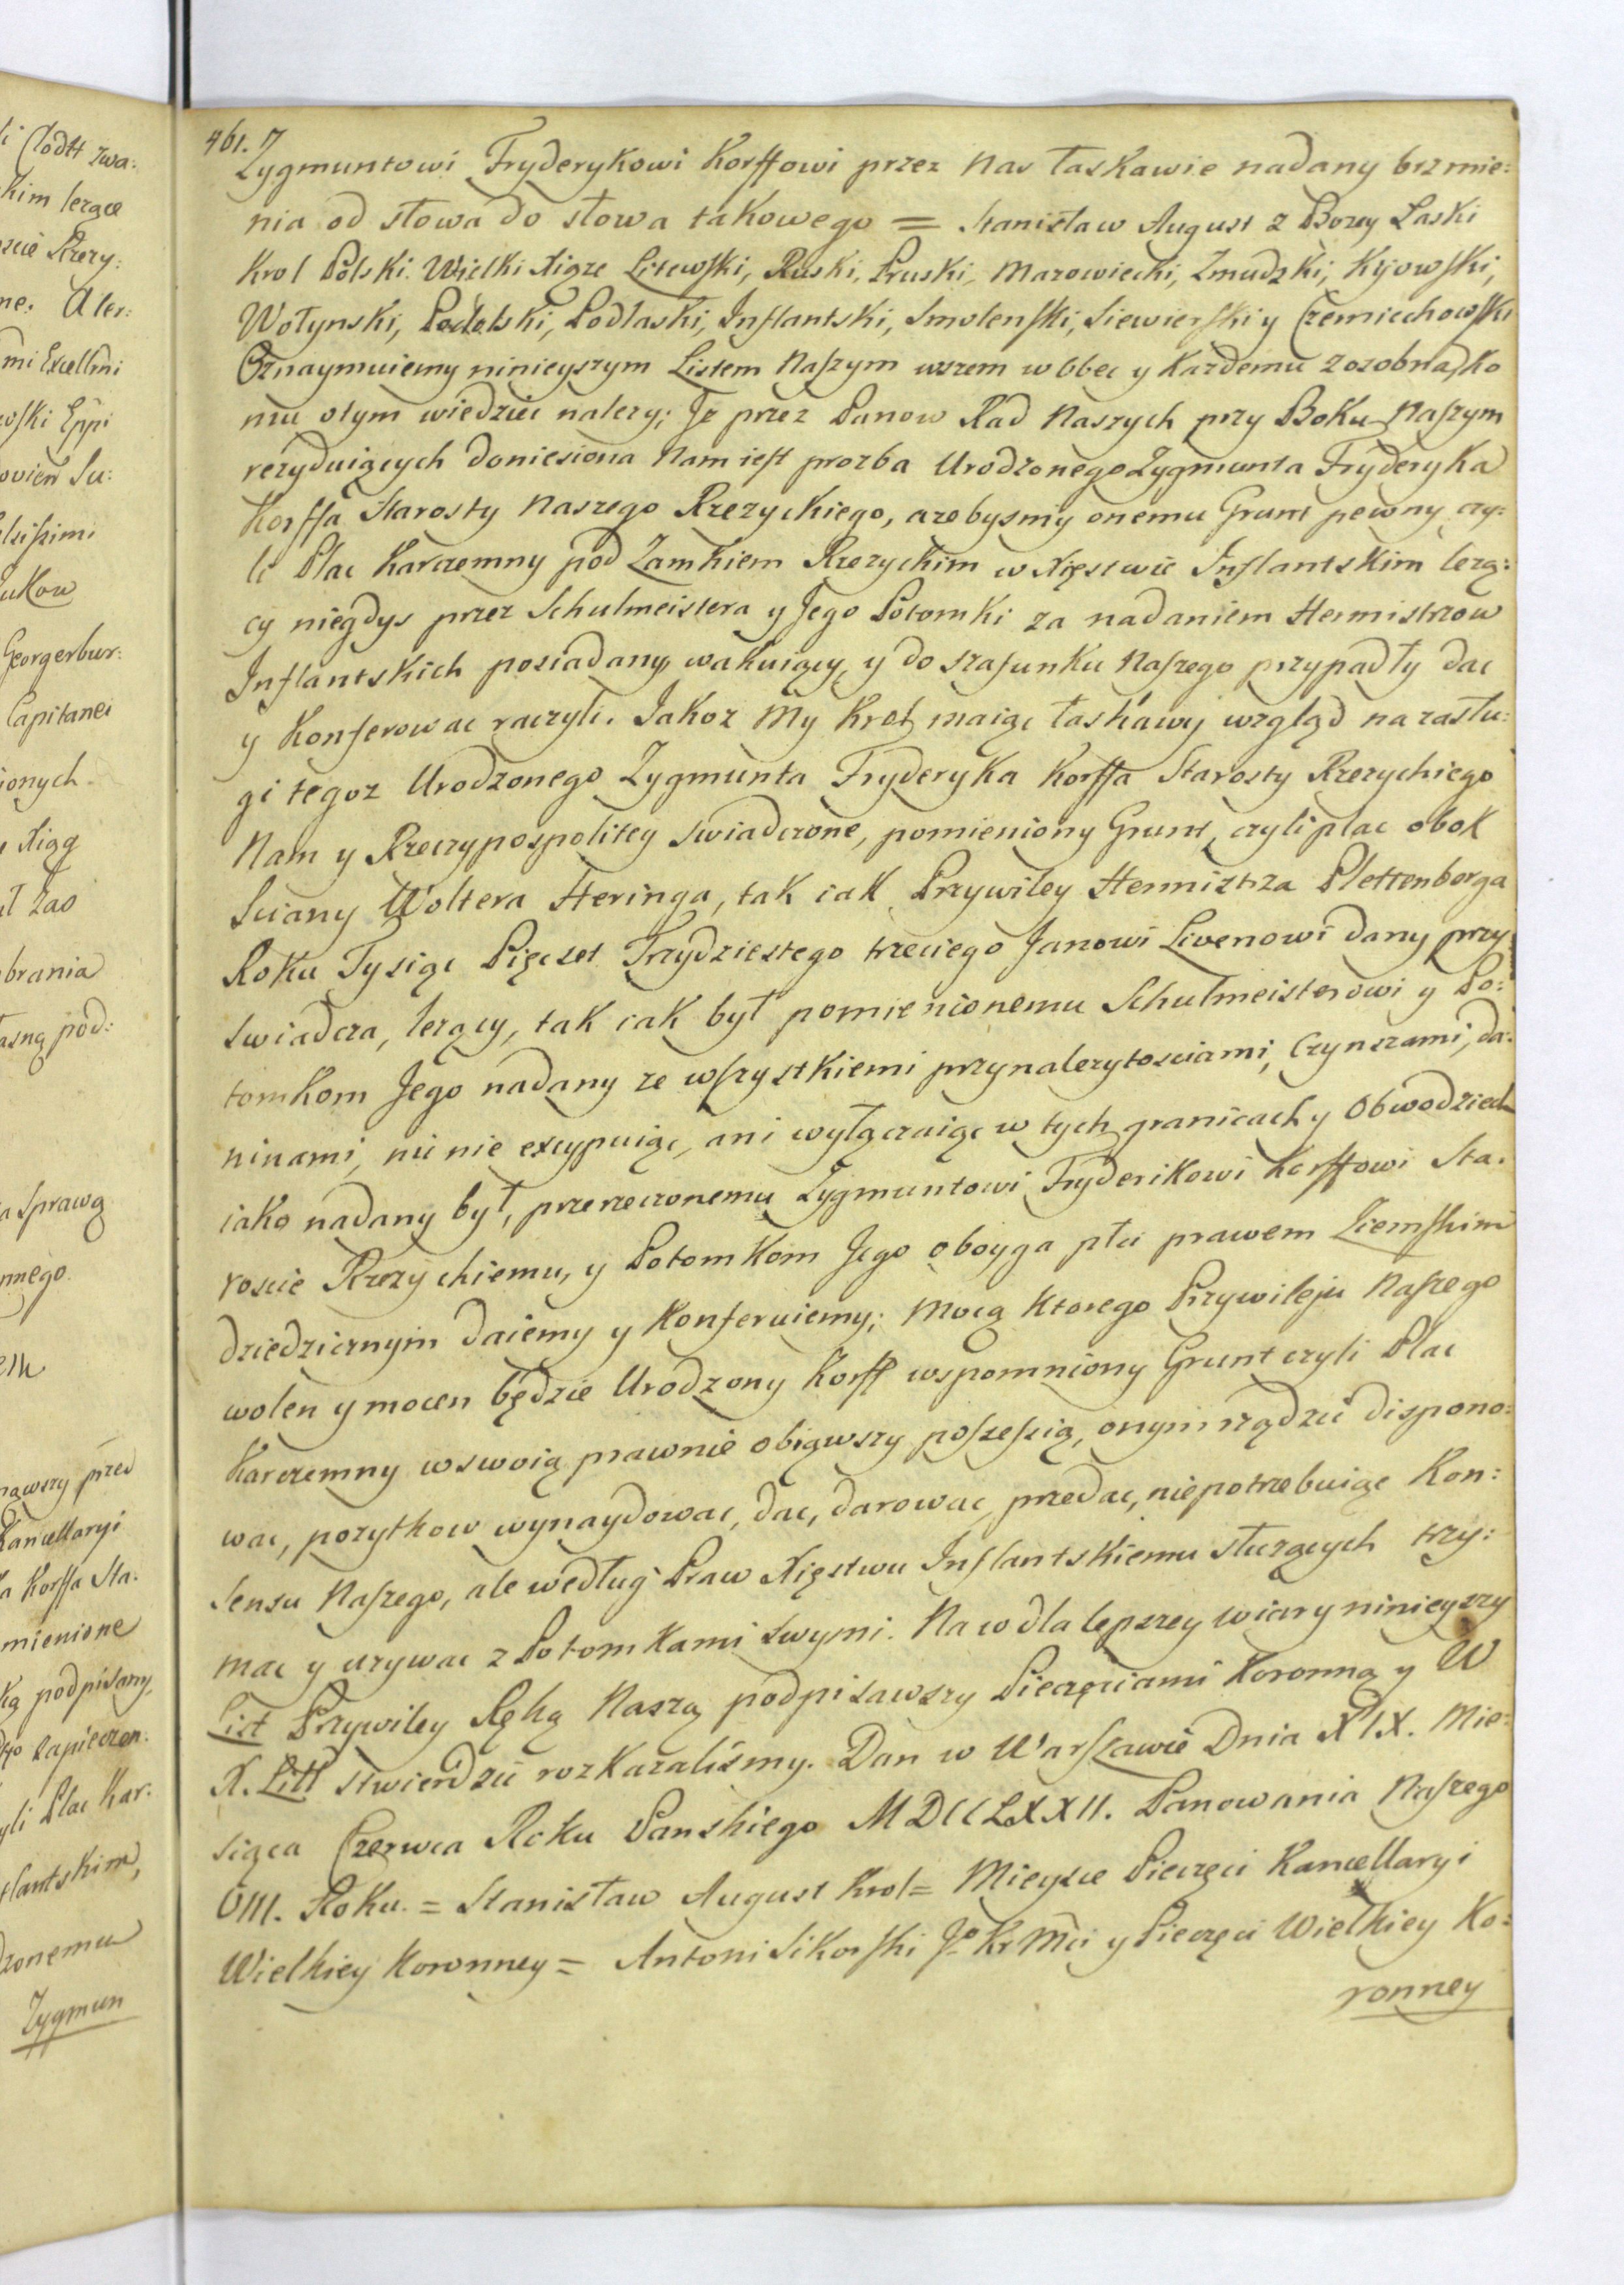 li Clodtt zwa:
kim lezące
zcie Rzezy:
ne. Aler:
mi Excellmi
wski Eppi
ovien Su:
Zukow
Georgerbur:
Capitanei
ionych
brania
asną pod:
a Sprawą
nnego.
Kancellaryi
a Korffa Sta.
mienione
ką podpisany,
zapieczen:
yli Plac Kar:
flantskim,
dzonemu
Zygmun
461.
Zygmuntowi Fryderykowi Korffowi przez Nas łaskawie nadany brzmie:
nia od słowa do słowa takowego = Stanisław August z Bozey Laski
Krol Polski. Wielki Xiąze Litewski, Ruski, Pruski, Mazowiecki, Zmudzki, Kijowski,
Wołynski, Podolski, Podlaski, Inflantski, Smolenski, Siewierski y Czerniechowski
Oznaymuiemy ninieyszym Listem Naszym wszem wobec y Kazdemu zosobna, ko
mu otym wiedziec nalezy; Iz przez Panow Rad Naszych przy Boku Naszym
rezyduiących doniesiona Nam iest prozba Urodzonego Zygmunta Fryderyka
Korffa Starosty Naszego Rzezyckiego, azebysmy onemu Grunt pewny czy:
li Plac Karczemny pod Zamkiem Rzezyckim w Xięstwie Inflantskim lezą:
cy niegdys przez Schulmeistera y Jego Potomki za nadaniem Hermistrzow
Inflantskich posiadany, wakuiący, y do szafunku Naszego przypadły dac
y Konferowac raczyli. Jakoz My Krol maiąc łaskawy wzgląd na zasłu:
gi tegoz Urodzonego Zygmunta Fryderyka Korffa Starosty Rzezyckiego
Nam y Rzeczypospolitey swiadczone, pomieniony Grunt, czyli plac obok
Sciany Woltera Heringa, tak iak Przywiley Hermistrza Plettenberga
Roku Tysiąc Pięcset Trzydziestego trzeciego Janowi Livenowi dany przy
swiadcza, lezący, tak iak był pomienionemu Schulmeisterowi y Po:
tomkom Jego nadany ze wszystkiemi przynalezytosciami, Czynszami, da:
ninami, nic nie excypuiąc, ani wyłączaiąc w tych granicach y Obwodziech
iako nadany był, przerzeczonemu Zygmuntowi Fryderikowi Korffowi Sta.
roscie Rzezyckiemu, y Potomkom Jego oboyga płci prawem Ziemskim
dziedzicznym daiemy y Konferuiemy; Mocą Ktorego Przywileju Naszego
wolen y mocen będzie Urodzony Korff wspomniony Grunt czyli Plac
Karczemny wswoią prawnie obiąwszy possessią, onym rządzić dispono:
wac, pozytkow wynaydowac, dac, darowac, przedac, niepotrzebuiąc Kon:
sensu Naszego, ale według Praw Xięstwu Inflantskiemu słuzących trzy:
mac y uzywac z Potomkami Swymi. Na co dla lepszey wiary ninieyszy
List Przywiley Ręką Naszą podpisawszy Pieczęciami Koronną y W
X. Litt stwierdzic rozkazalismy. Dan w Warszawie Dnia XIX. Mie:
siąca Czerwca Roku Panskiego MDCCLXXII. Panowania Naszego
VIII. Roku. = Stanisław August Krol = Mieysce Pieczęci Kancellaryi
Wielkiey Koronney = Antoni Sikorski Jo Kr Mci y Pieczęci Wielkiey Ko:
ronney